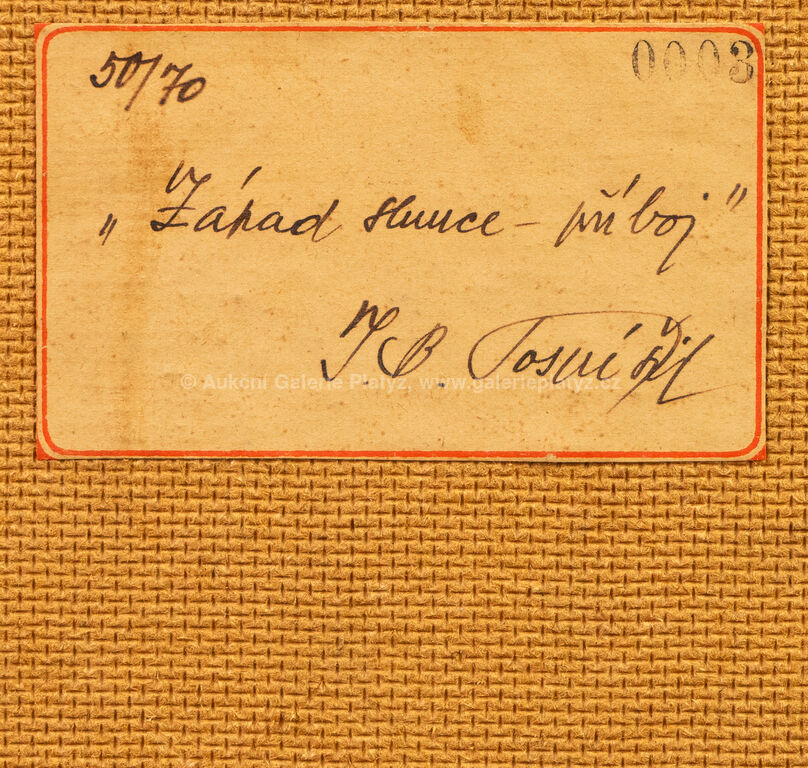 50/70
0003
„Západ slunce - příboj"
J. B. Tosčí
© Aukční Galerie Platýz, www.galerieplatyz.cz